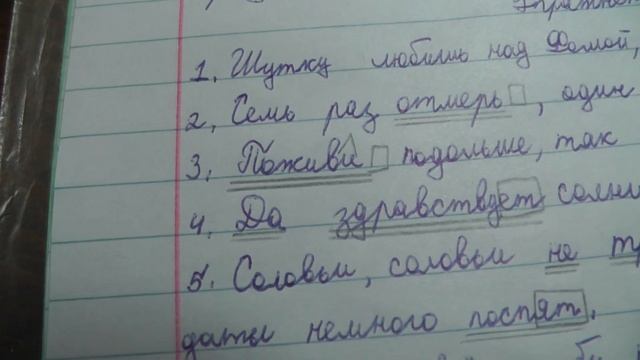 1. Шутку любишь над Фомой,
2. Семь раз отмерь, один
3. Поживи подольше, так
4. Да здравствует
5. Соловьи, соловьи не
даты немного поспят.